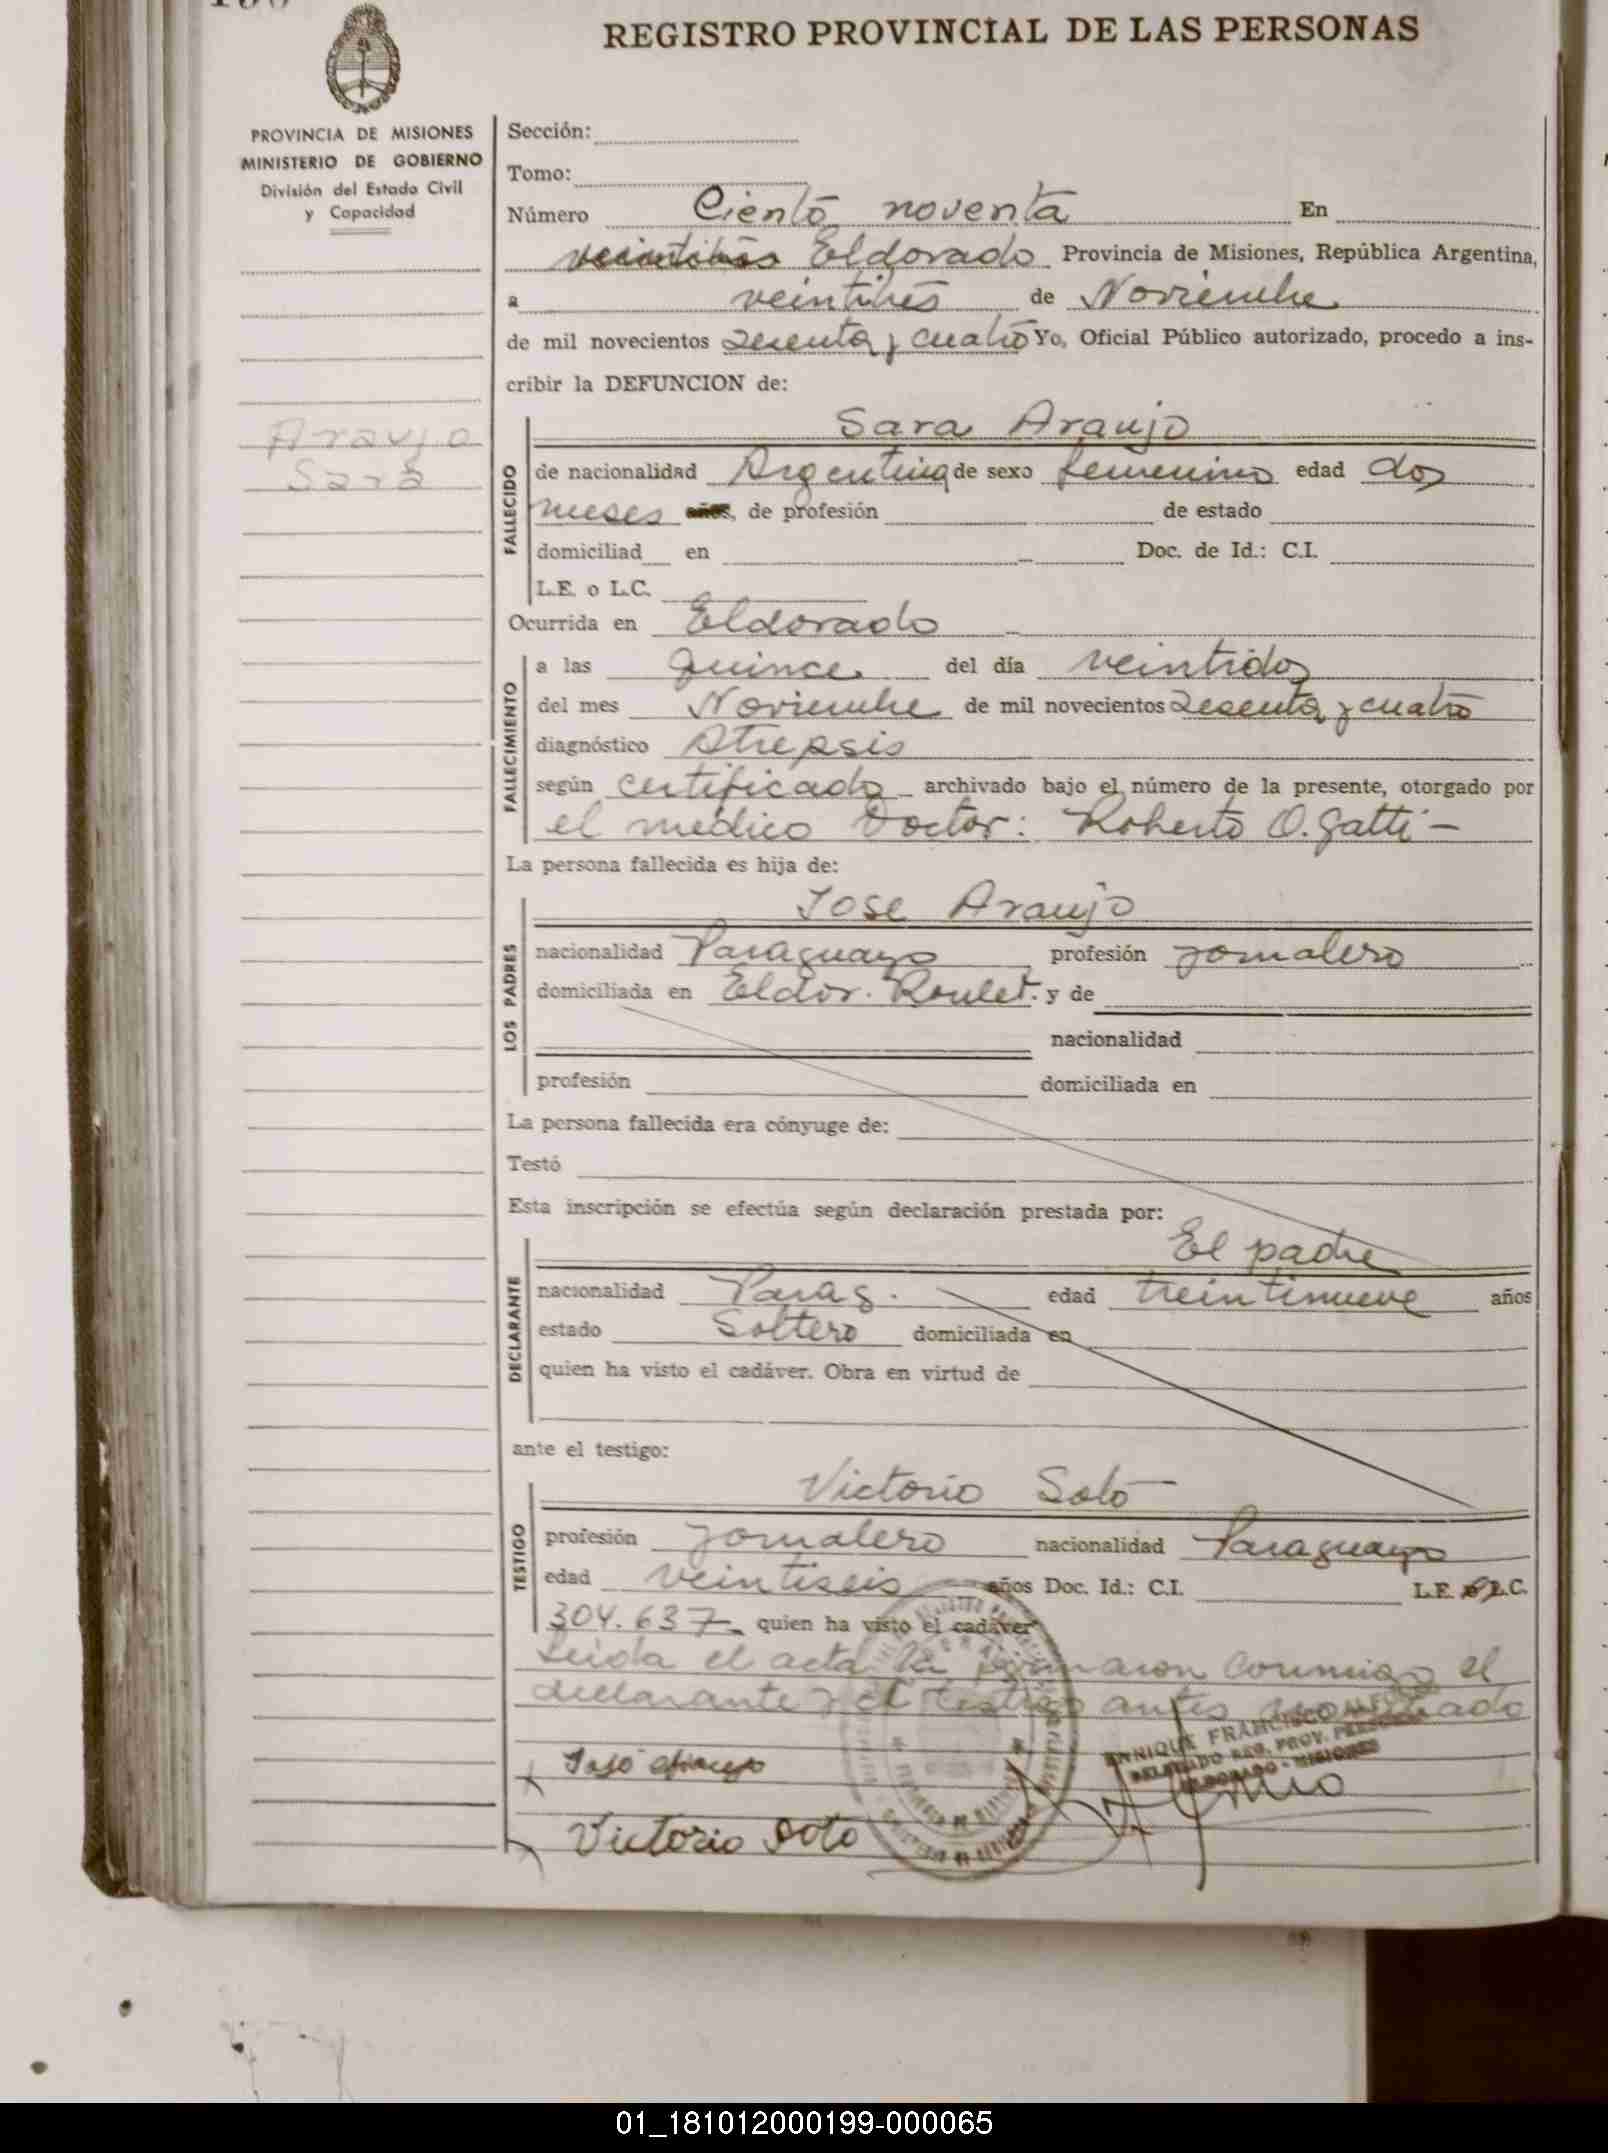 REGISTRO PROVINCIAL DE LAS PERSONAS
PROVINCIA DE MISIONES
MINISTERIO DE GOBIERNO
División del Estado Civil
y Capacidad
Sección:
Tomo:
Número Ciento noventa En
Eldorado Provincia de Misiones, República Argentina,
a veintitres de Noviembre
de mil novecientos sesenta y cuatro Yo, Oficial Público autorizado, procedo a ins-
cribir la DEFUNCION de:
Araujo
Sara
FALLECIDO
Sara Araujo
de nacionalidad Argentina de sexo femenino edad dos
meses años, de profesión de estado
domiciliad en Doc. de Id.: C.I.
L.E. o L.C.
Ocurrida en Eldorado
FALLECIMIENTO
a las quince del día veintidos
del mes Noviembre de mil novecientos sesenta y cuatro
diagnóstico Atrepsis
según certificado archivado bajo el número de la presente, otorgado por
el médico Doctor: Roberto O. Gatti -
La persona fallecida es hija de:
LOS PADRES
Jose Araujo
nacionalidad Paraguayo profesión jornalero
domiciliada en Eldor. Roulet. y de
nacionalidad
profesión domiciliada en
La persona fallecida era cónyuge de:
Testó
Esta inscripción se efectúa según declaración prestada por:
DECLARANTE
El padre
nacionalidad Parag. edad treintinueve años
estado Soltero domiciliada en
quien ha visto el cadáver. Obra en virtud de
ante el testigo:
TESTIGO
Victorio Soto
profesión jornalero nacionalidad Paraguayo
edad veintiseis años Doc. Id.: C.I. L.E. o L.C.
304.637 quien ha visto el cadáver
Leida el acta la firmaron conmigo el
declarante y el testigo antes
José Araujo
ENRIQUE FRANCISCO
DELEGADO REG. PROV. PERSONAS
ELDORADO - MISIONES
Victorio Soto
01_181012000199-000065